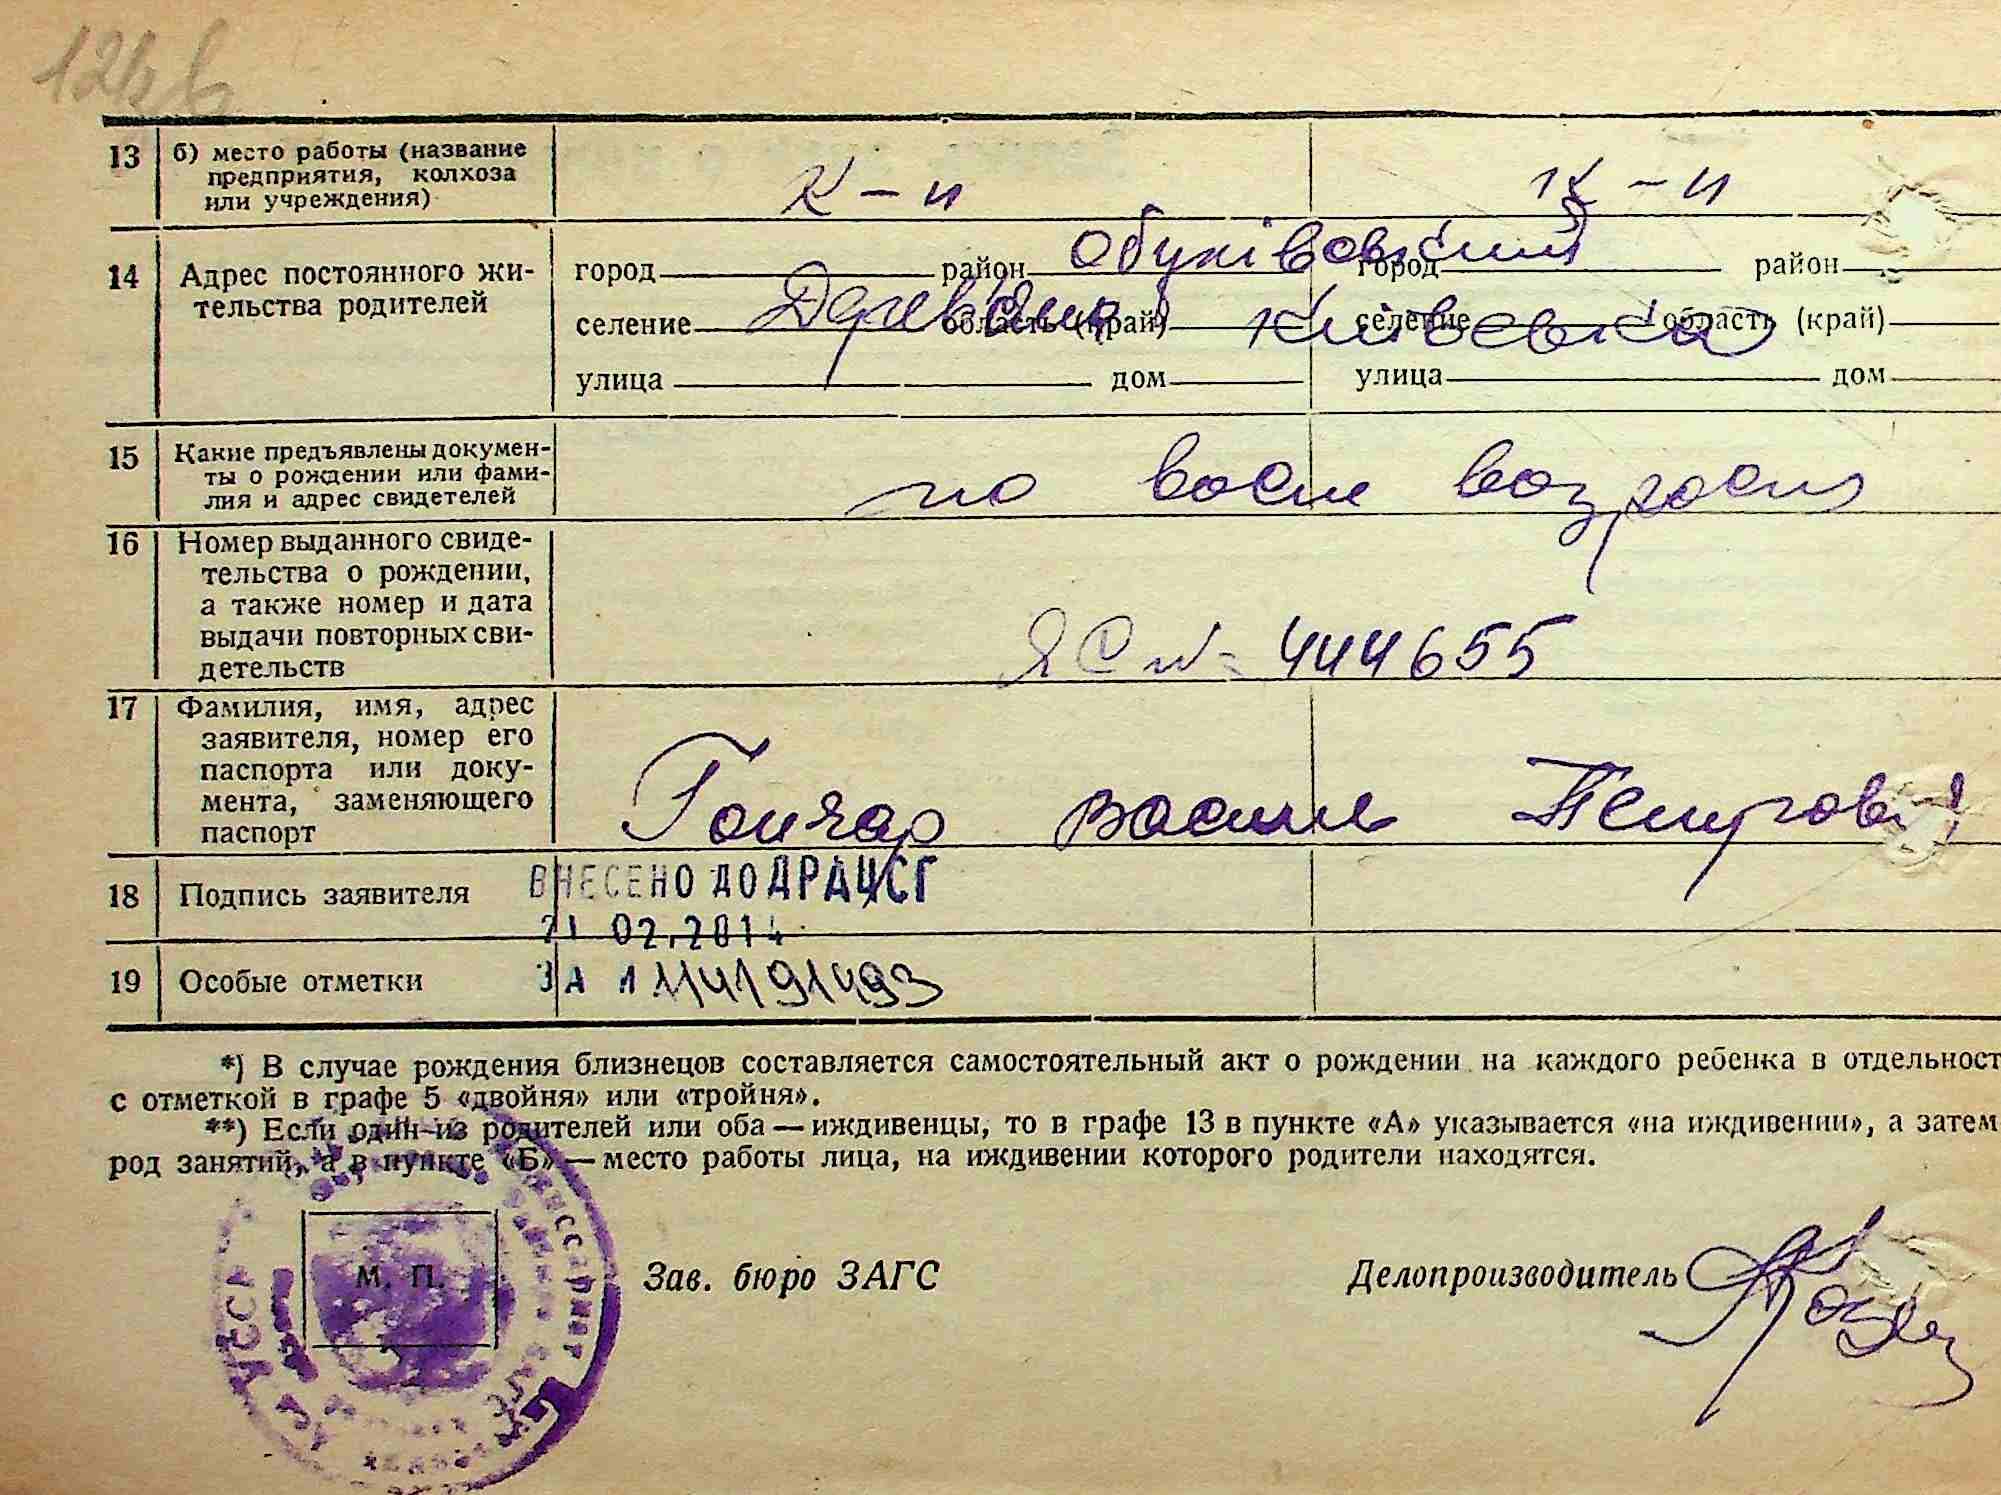 13 б) место работы (название
предприятия, колхоза
или учреждения)
К-и К-и
14 Адрес постоянного жи-
тельства родителей
город район Обухівський город район
селение Деревяна область (край) Київська селение область (край)
улица дом улица дом
15 Какие предъявлены докумен-
ты о рождении или фами-
лия и адрес свидетелей
по восст возраста
16 Номер выданного свиде-
тельства о рождении,
а также номер и дата
выдачи повторных сви-
детельств
ЯС № 444655
17 Фамилия, имя, адрес
заявителя, номер его
паспорта или доку-
мента, заменяющего
паспорт
Гончар Василь Петрович
18 Подпись заявителя ВНЕСЕНО ДО ДРАЦСГ
21 02.2014
19 Особые отметки ЗА
*) В случае рождения близнецов составляется самостоятельный акт о рождении на каждого ребенка в отдельност
с отметкой в графе 5 «двойня» или «тройня».
**) Если один из родителей или оба — иждивенцы, то в графе 13 в пункте «А» указывается «на иждивении», а затем
род занятий, а в пункте «Б» — место работы лица, на иждивении которого родители находятся.
УССР
М. П. Зав. бюро ЗАГС Делопроизводитель